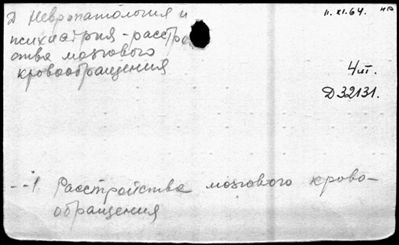 Д Невропатология и
психиатрия - расстрой
ства мозгового
кровообращения
11.XI.64.
4 шт.
Д32131.
--1 Расстройства мозгового крово-
обращения